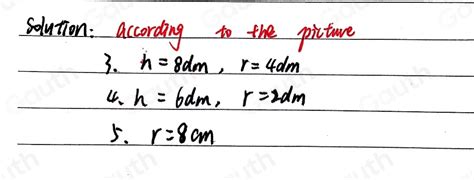 Solution: according to the picture
3. h=8dm, r=4dm
4. h=6dm, r=2dm
5. r=8cm